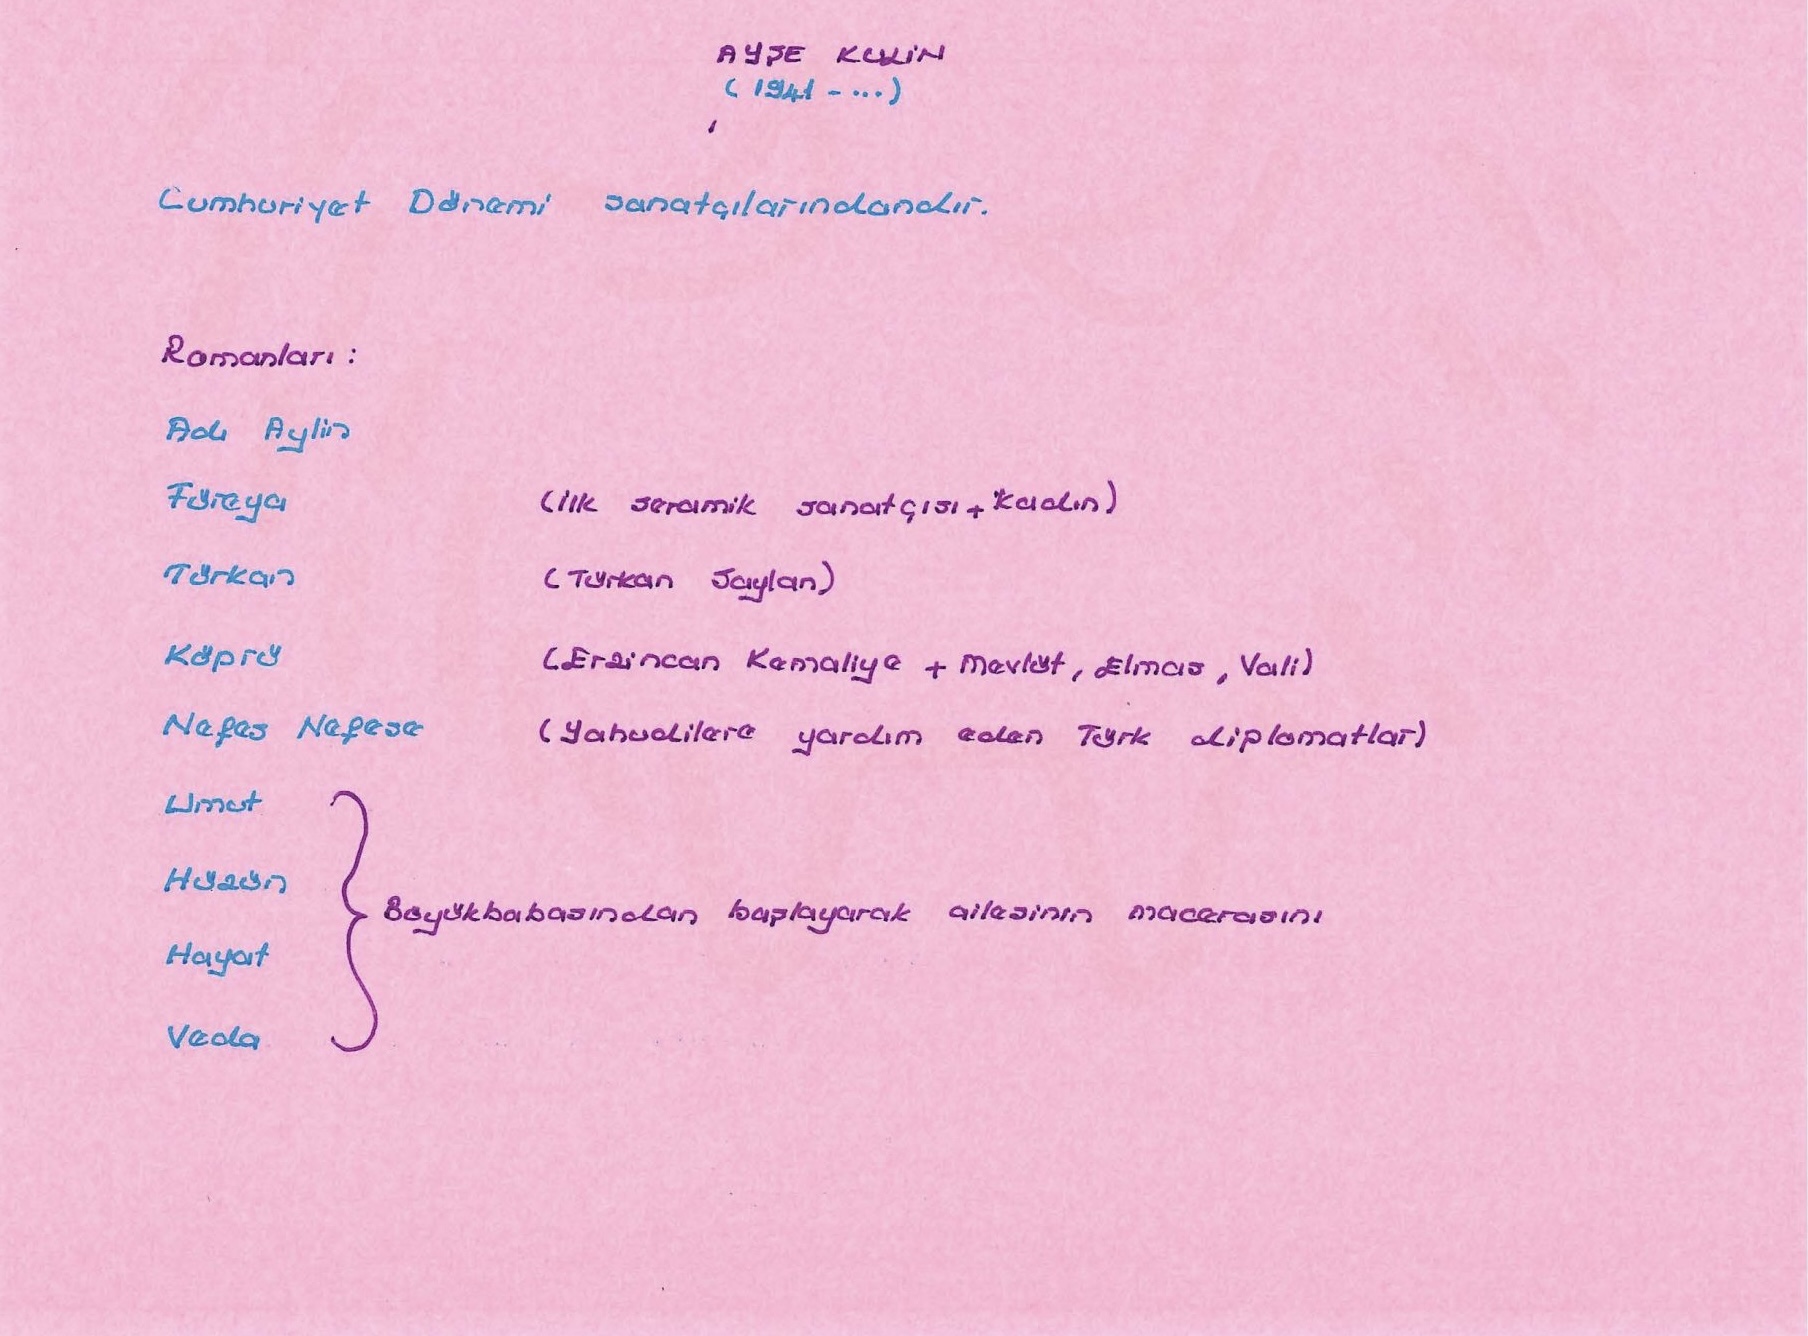 AYŞE KULİN
(1941 - ...)
Cumhuriyet Dönemi sanatçılarındandır.
Romanları :
Adı Aylin
Füreya (İlk seramik sanatçısı + Kadın)
Türkan (Türkan Saylan)
Köprü (Erzincan Kemaliye + Mevlüt, Elmas, Vali)
Nefes Nefese (Yahudilere yardım eden Türk diplomatlar)
Umut
Hüzün
Büyükbabasından başlayarak ailesinin macerasını
Hayat
Veda